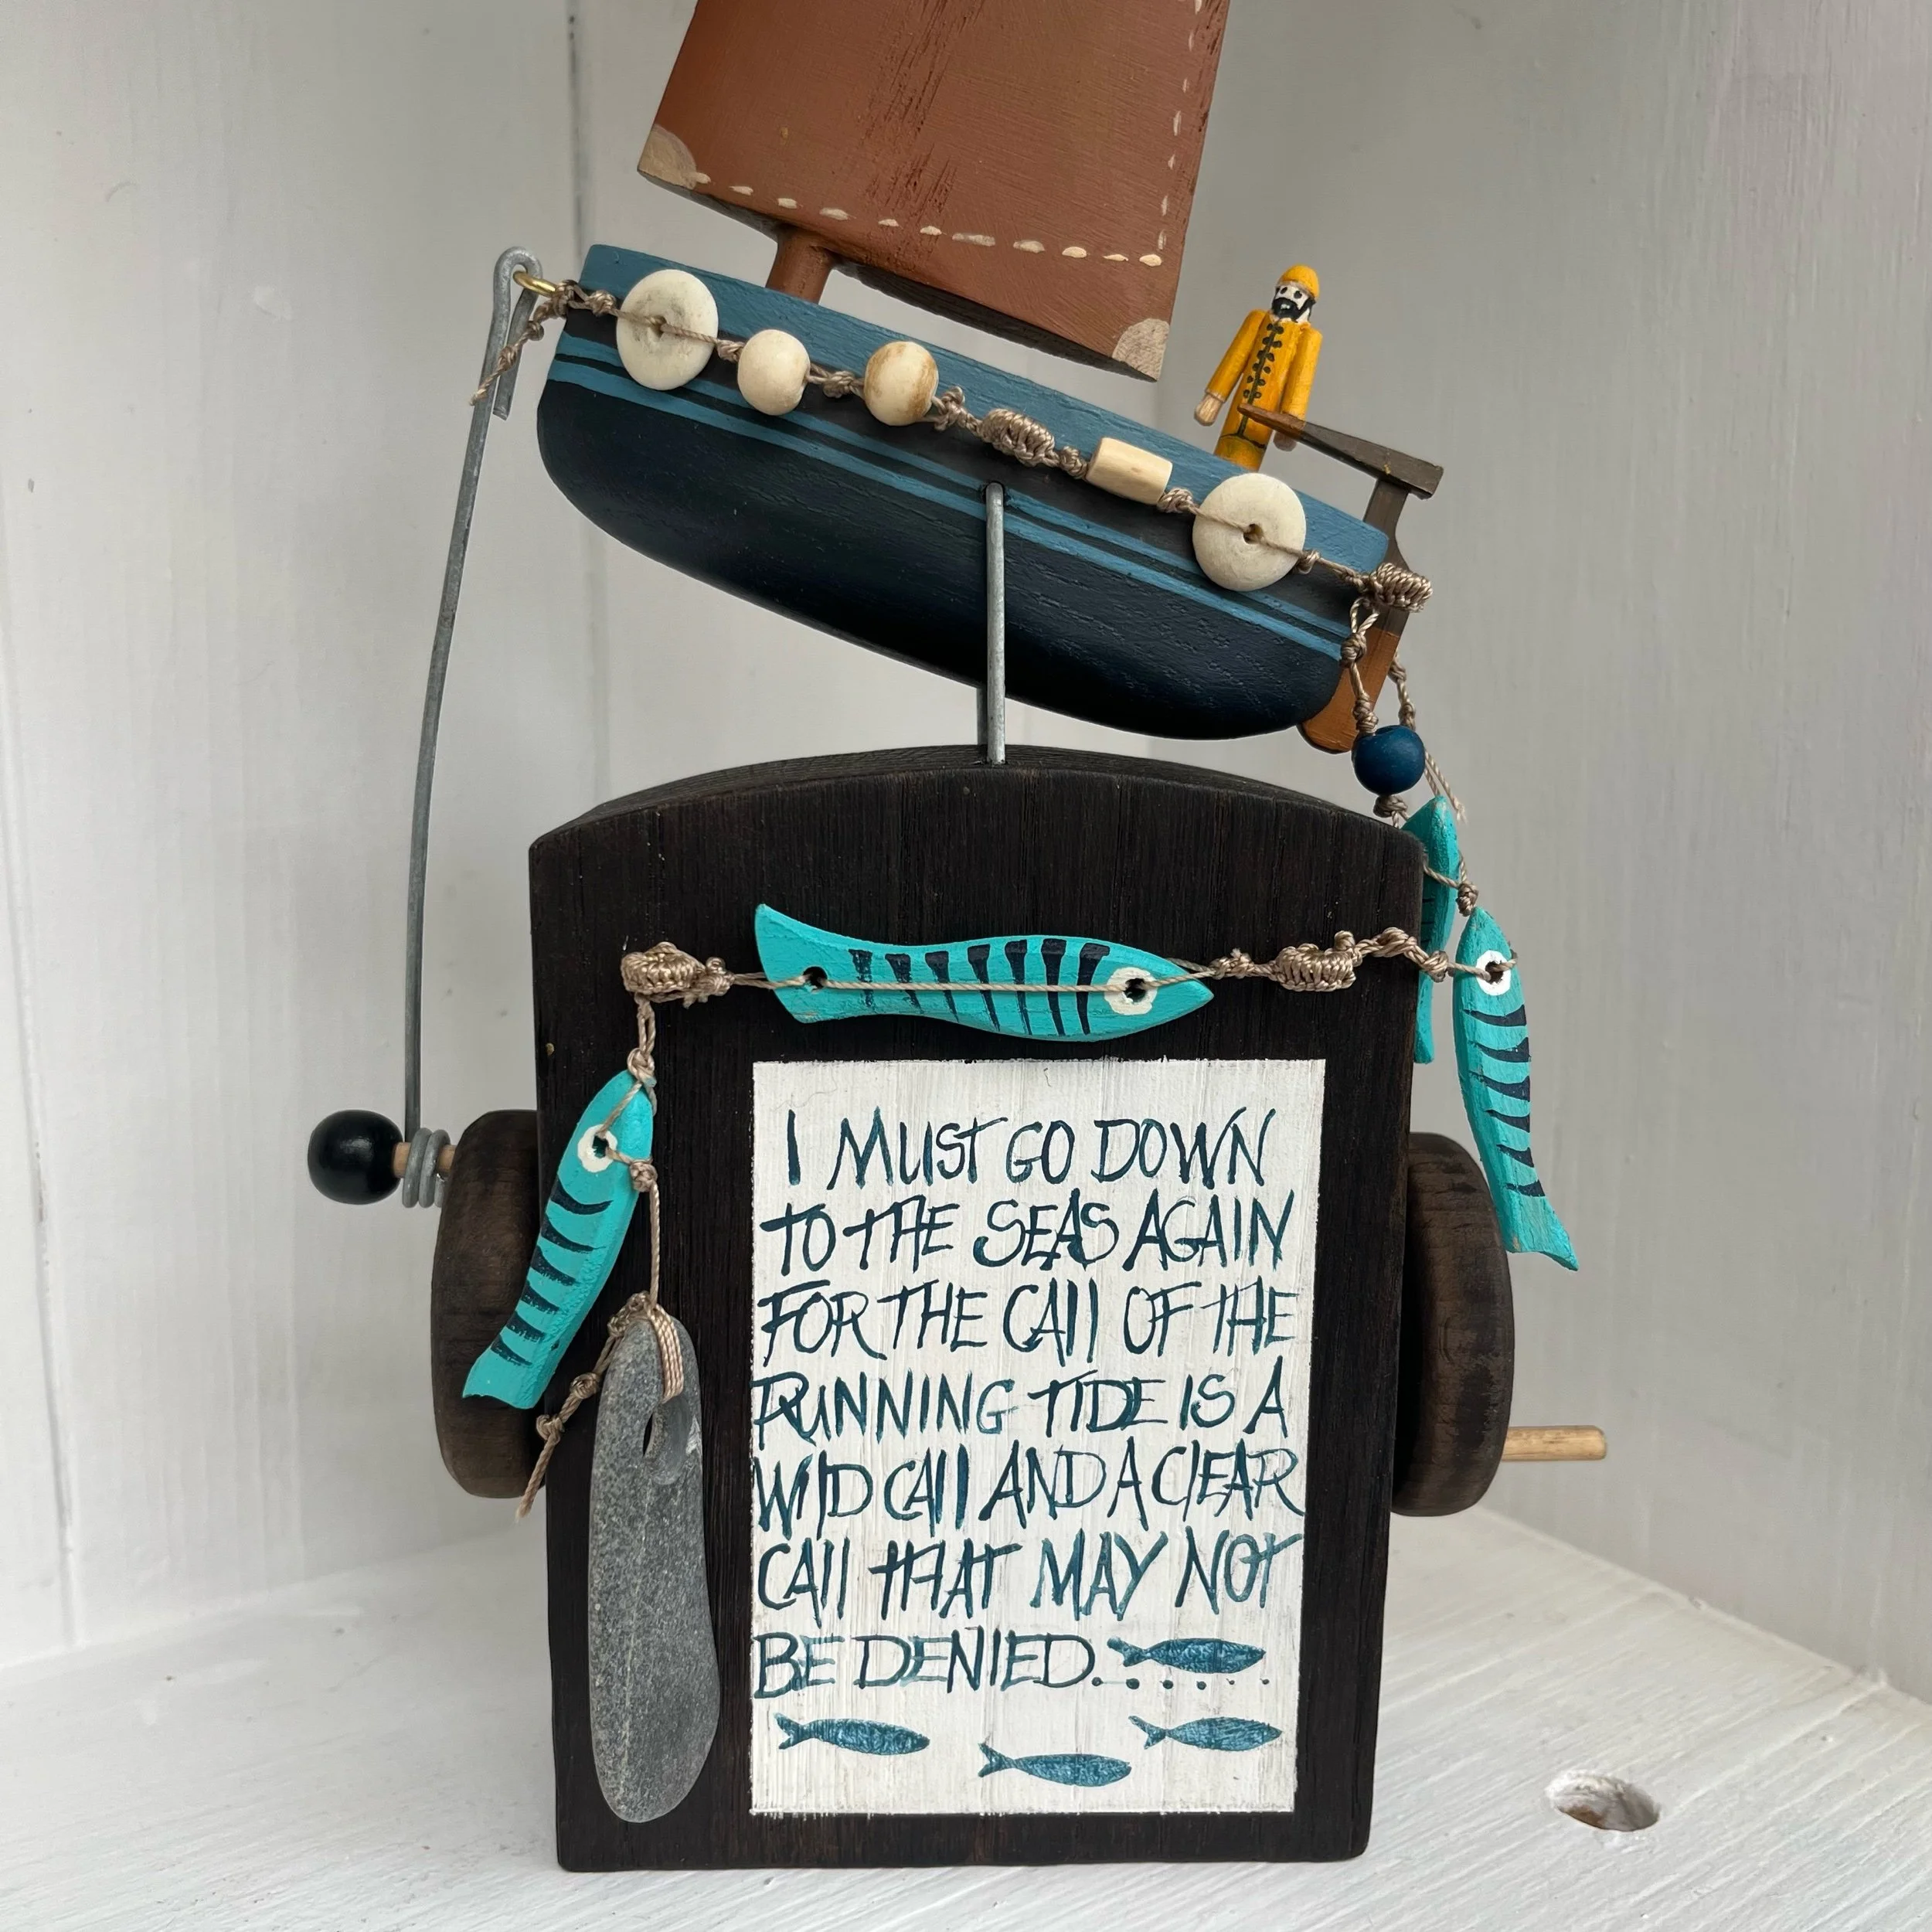 I MUST GO DOWN
TO THE SEAS AGAIN
FOR THE CALL OF THE
RUNNING TIDE IS A
WILD CALL AND A CLEAR
CALL THAT MAY NOT
BE DENIED.......